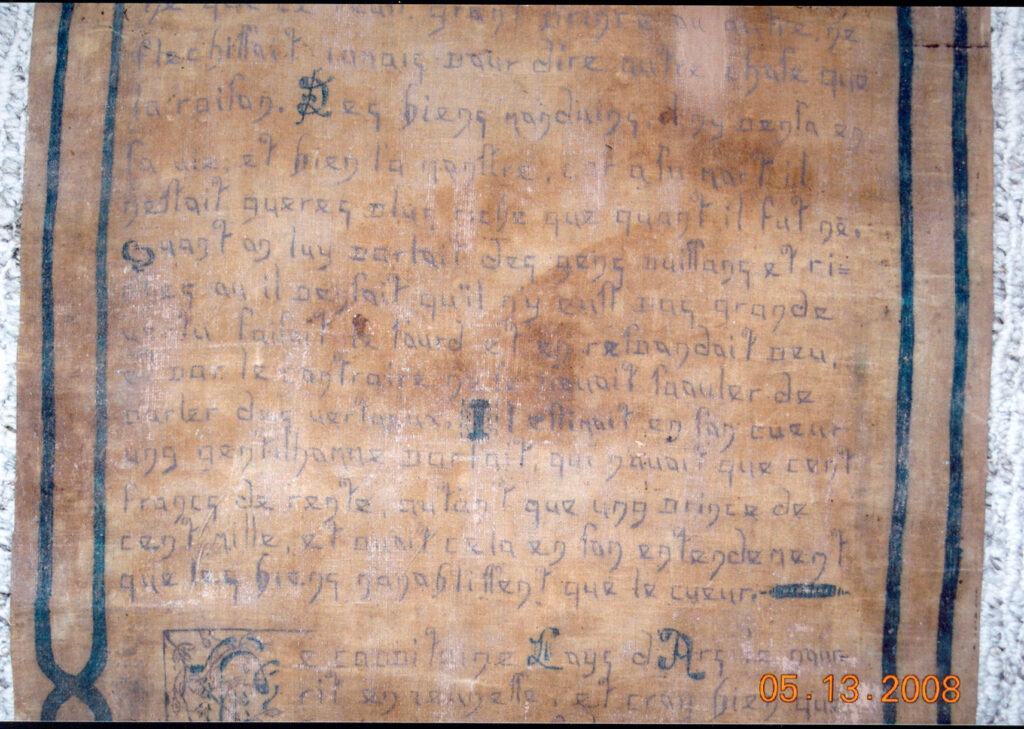 ne que ce feust, grant prince ou autre, ne
flechissoit iamais pour dire autre chose que
la raison. Des biens mondains, il ny pensa en
sa vie, et bien la monstre, car a sa mort il
nestoit gueres plus riche que quant il fut né.
Quant on luy parloit des gens puissans et ri=
ches ou il pensoit qu'il n'y eust pas grande
vertu faisoit le sourd et en respondoit peu,
et par le contraire ne se pouoit saouler de
parler des vertueux. Il estimoit en son cueur
ung gentilhomme parfait, qui navoit que cent
francs de rente, autant que ung prince de
cent mille, et avoit cela en son entendement
que les biens nanoblissent que le cueur.
Le cappitaine Loys d'Ars le nour-
rit en jeunesse, et croy bien que
05.13.2008